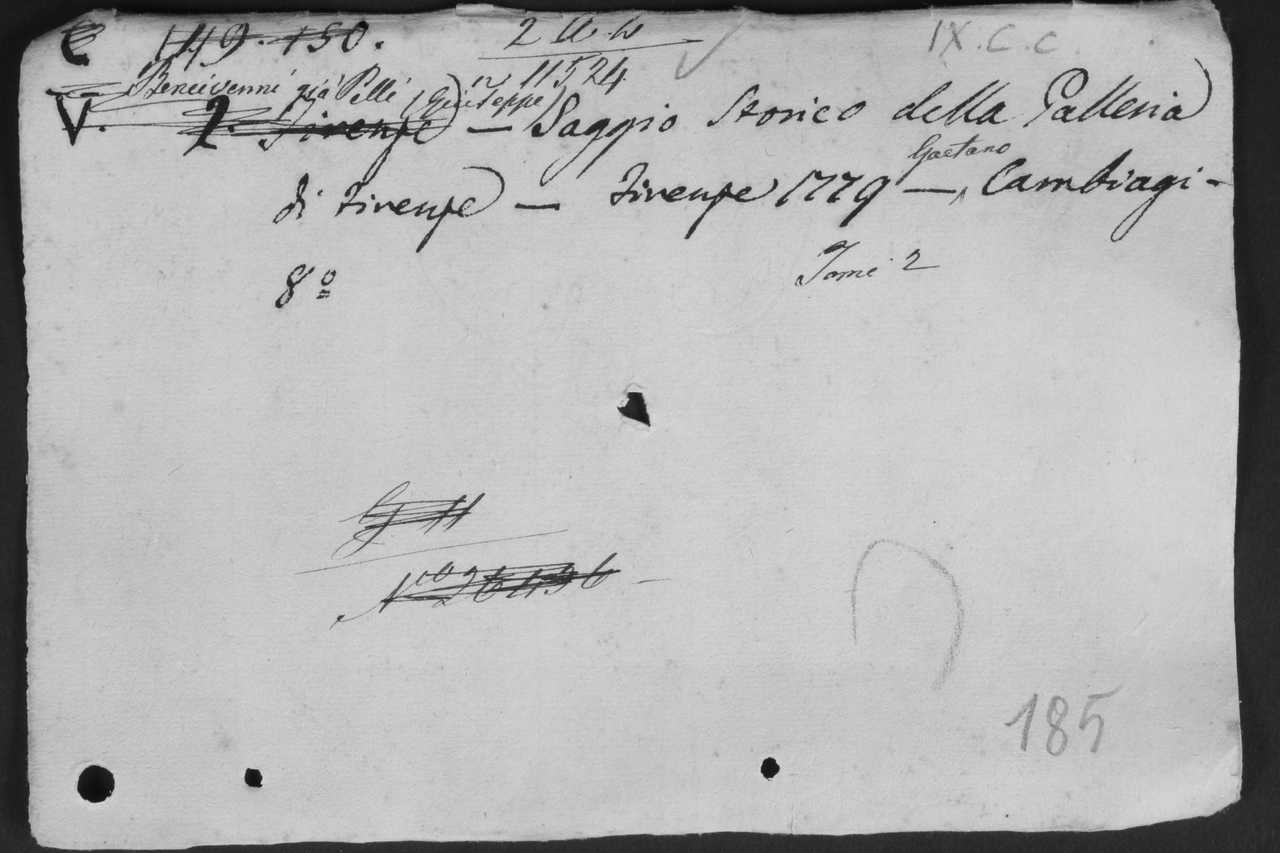 C 149. 150. 2 U W IX.C.C
Bencivenni già Pelli (Giuseppe) n 11524
V. 2. Firenze — Saggio Storico della Galleria
di Firenze — Firenze 1779 — Gaetano Cambiagi -
8º Tomi 2
G. 11
Nº 26436
185